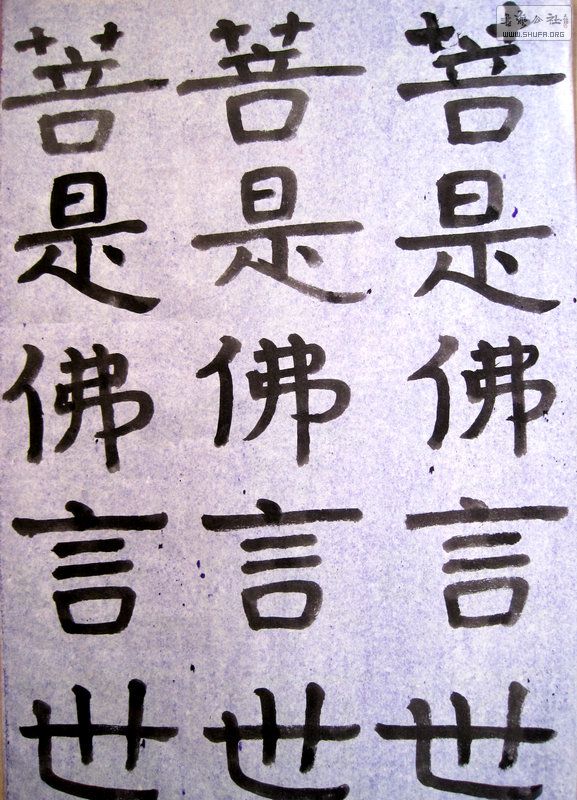 菩是佛言世
菩是佛言世
菩是佛言世
公社
WWW.SHUFA.ORG